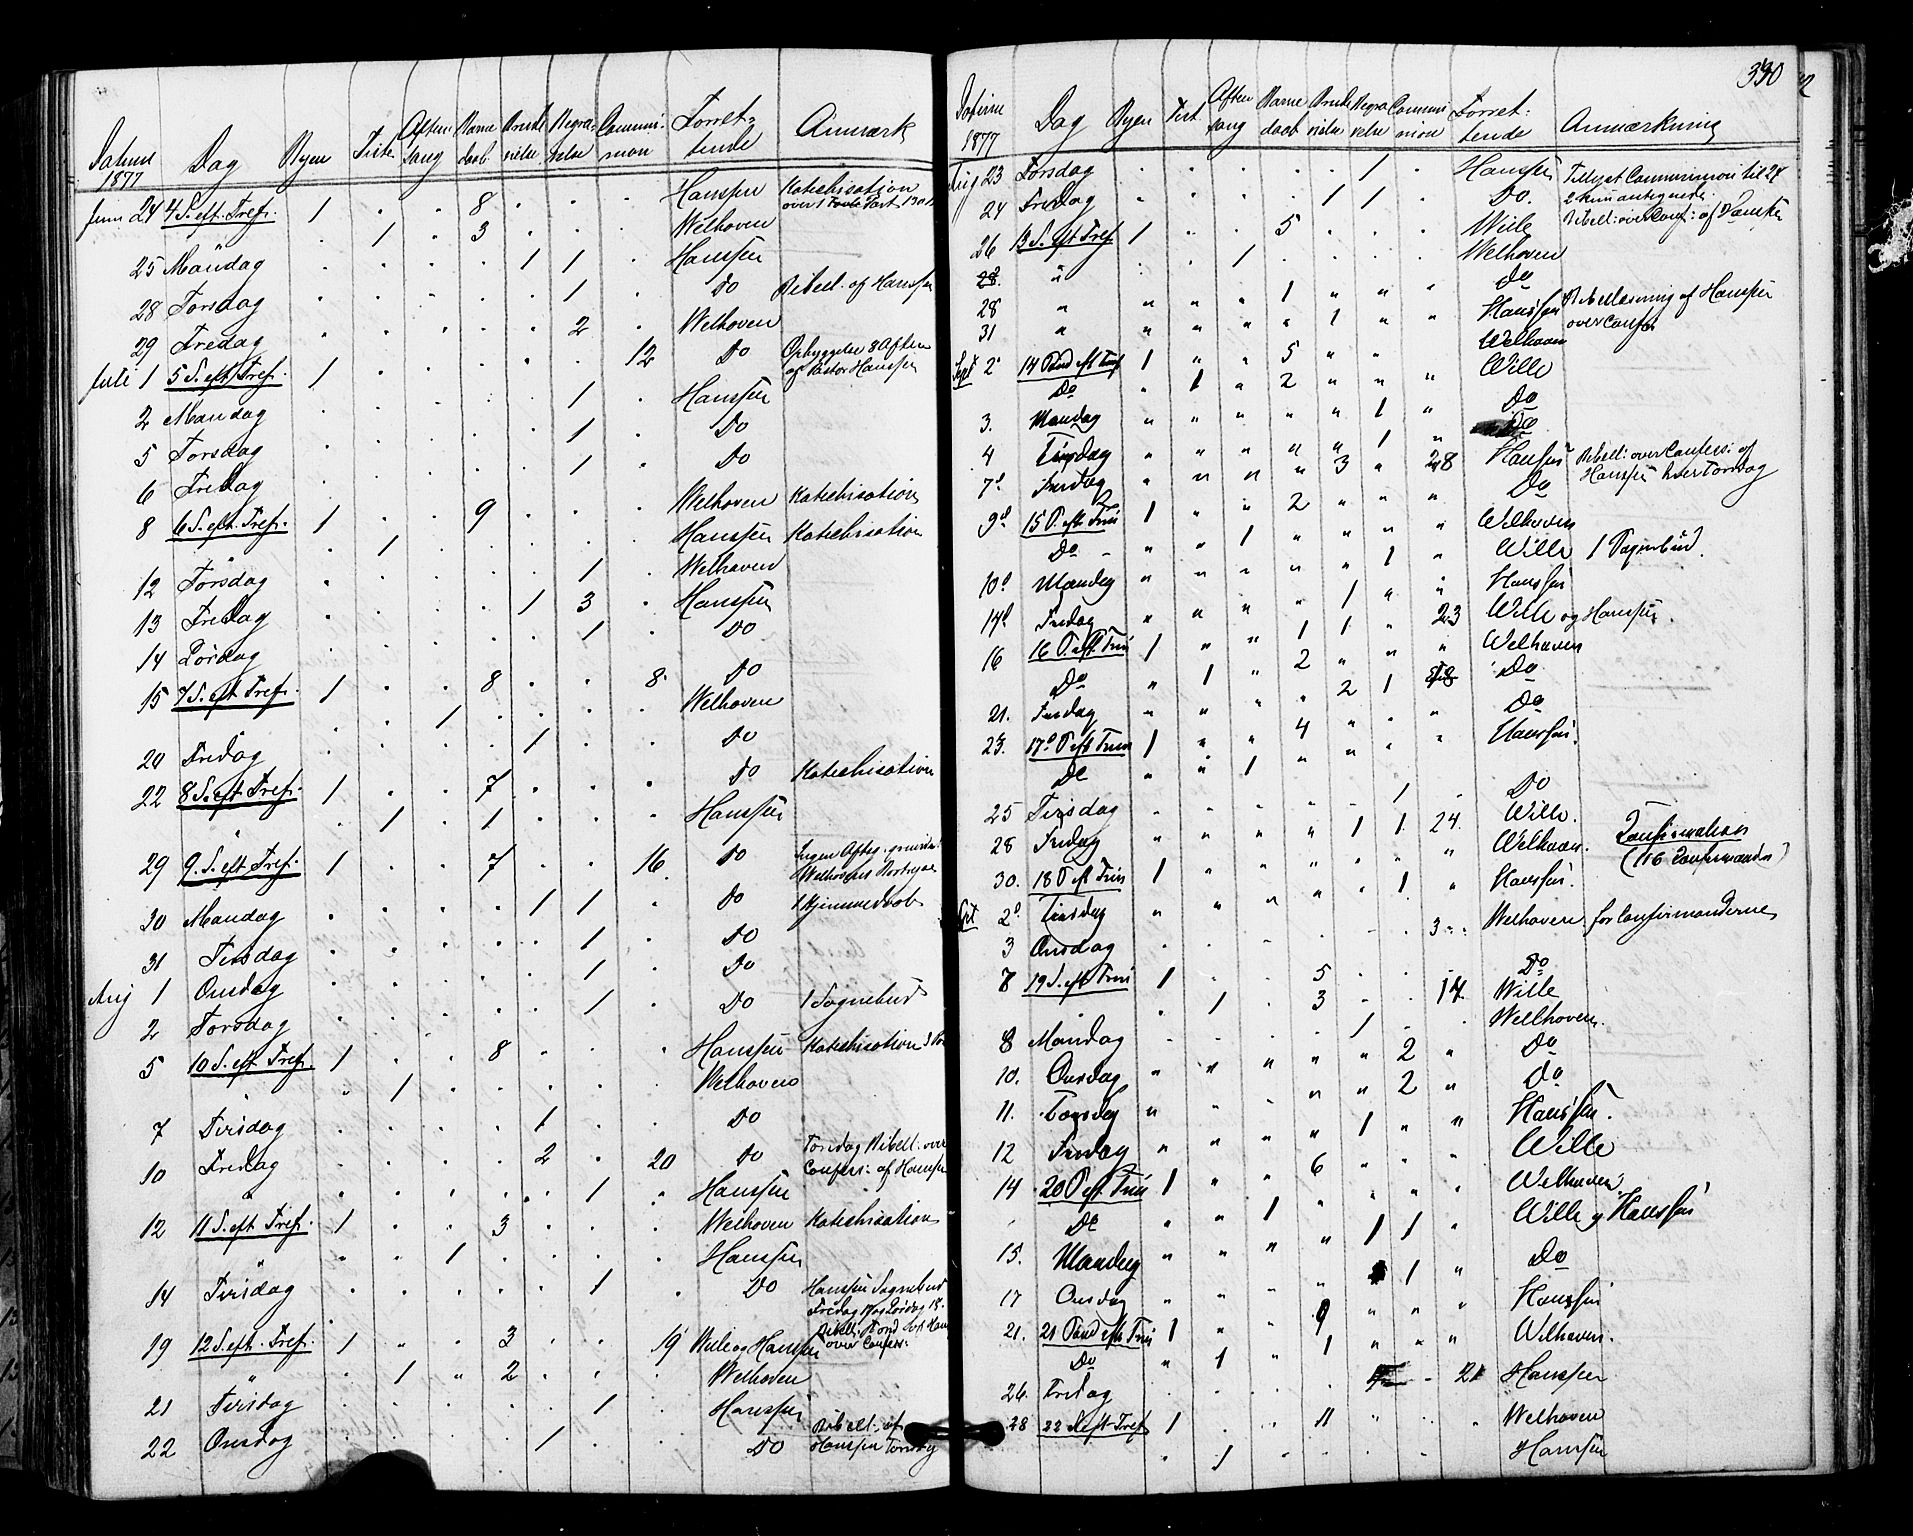 390
Datum 1877 Dag Byen Tiste Aftensang Barnedaab Brudevielse Begravelse Communion Forrettende Anmærk
Juni 24 4 S. eft. Tref. 1 . . 8 . . . Hanssen Katechisation
. 1 . 3 . . . Welhaven
25 Mandag . . . . 1 1 . Hanssen
28 Torsdag . . . . . 1 . Do Bibell. af Hanssen
29 Fredag . . . . . 2 . Welhaven
12 Do Opbyggelse 8 Aften
af Pastor Hanssen
Juli 1 5 S. eft. Tref. 1
2 Mandag . . . . . 1 . Hanssen
5 Torsdag . . . . . 1 . Do
6 Fredag . . . . . 1 . Do
8 6 S. eft. Tref. 1 . . 9 . . . Welhaven Katechisation
. 1 . . . . . Hanssen Katechisation
12 Torsdag . . . . . 1 . Welhaven
13 Fredag . . . . 1 3 . Hanssen
14 Lördag . . . . . 1 . Do
15 7 S. eft. Tref. 1 . . 8 . . 8 Do
. . 1 . . . . Welhaven
20 Fredag . . . . 1 . . Do
22 8 S. eft. Tref. 1 . . 7 . . . Do Katechisation
. 1 . 1 . . . Hanssen
29 9. S. eft. Tref. 1 . . 7 . . 16 Do Ingen Aftes. grundet
Welhavens Bortreise
30 Mandag . . . . 1 1 . Do 1 Hjemmedaab
31 Tirsdag . . . . . 1 . Do
Aug 1 Onsdag . . . . . 1 . Do
2 Torsdag . . . . . 1 . Do 1 Sognebud
5 10 S. eft. Tref. 1 . . 8 . . . Hanssen Katechisation
" 1 . . . . . Welhaven
7 Tirsdag . . . . 1 . . Do
10 Fredag . . . . 2 . 20 Do Torsdag Bibell. over
Confess. af Hanssen
. . . . . 1 . Hanssen
12 11 S. eft. Tref. 1 . . 3 . . . Welhaven Katechisation
" " 1 . . . . Hanssen
14 Tirsdag . . . . . 1 . Do Hanssen Sognebud
Fredag 17 og Lördag 18.
19 12 S. eft. Tref. 1 " . 3 . . 19 Wille og Hanssen
over Confess.
. 1 " 2 . . . Welhaven
21 Tirsdag . . . . . 1 . Hanssen
22 Onsdag . . . . 1 . . Do Bibell. af
Hanssen Torsdag
Datum 1877 Dag Byen Tist. Aftensang Barnedaab Brudevielse Begravelse Communion Forrettende Anmærkning
Aug 23 Torsdag . . . . . 1 . Hanssen Tillyst Communion til 24
24 Fredag . . . . 1 1 . Do. 2 kun antegnede
26 13 S. eft Tref 1 . . 5 . . . Wille
. . 1 . . . . Welhaven
28. " Do
28 " " " " 1 " " " Hanssen Bibellæsning af Hanssen
31 " " " " " 1 " " Welhaven over Confess
Sept 2 14 Sönd eft Trin 1 " " 5 " " Wille
Do " 1 " 2 " " " Do
3. Mandag " " " " " 1 " Do
4 Tirsdag " " " " " 1 " Hanssen Bibell: over Confess: af
7 Fredag " " " " 3 " 28 Do Hanssen hver Torsdag
9 15 S. eft Trin 1 " " 2 " " " Welhaven
Do " " 1 " " " " Wille 1 Sognebud.
10 Mandag " " " " " 1 " Hanssen
14 Fredag " " " " 1 " 23 Wille og Hanssen.
16 16 S. eft Trin 1 " " 1 1 " " Welhaven
Do " 1 " 2 " " " Do
21. Fredag " " " " 2 1 18 Do
23. 17 S. eft Trin 1 " " 4 " " " Hanssen.
Do " " 1 " " " "
25 Tirsdag . . . . . 1 . Do
28 Fredag " " " " 1 1 24. Wille.
30. 18 S. eft Trin 1 " " " " " " Welhaven. Confirmation
(116 Confirmander)
2 Tirsdag " " " " " 1 " Hanssen.
3 Onsdag . . . . . . 3 Welhaven. for Confirmanderne
7 19 S. eft Trin 1 . . 5 . . . Do
. 1 . 3 . . 14 Wille
8 Mandag . . . . 1 . . Welhaven.
10. Onsdag " " " " " 2 " Do
11. Torsdag " " " " " 2 " Do
12 Fredag " " " " 1 " " Hanssen.
14 20 S. eft. Trin 1 " " 6 " " " Wille
Do " " 1 " " " " Welhaven
15. Mandag " " " " 1 1 " Wille og Hanssen
17 Onsdag " " " " 1 " Do
21. 21 Sönd eft Trin 1 " " 9 " " " Hanssen
Do " 1 " 1 " " " Welhaven.
26. Fredag . . . . . 21 Hanssen
28 22 S. eft Tref 1 . . 11 " " . Welhaven
. 1 Hanssen